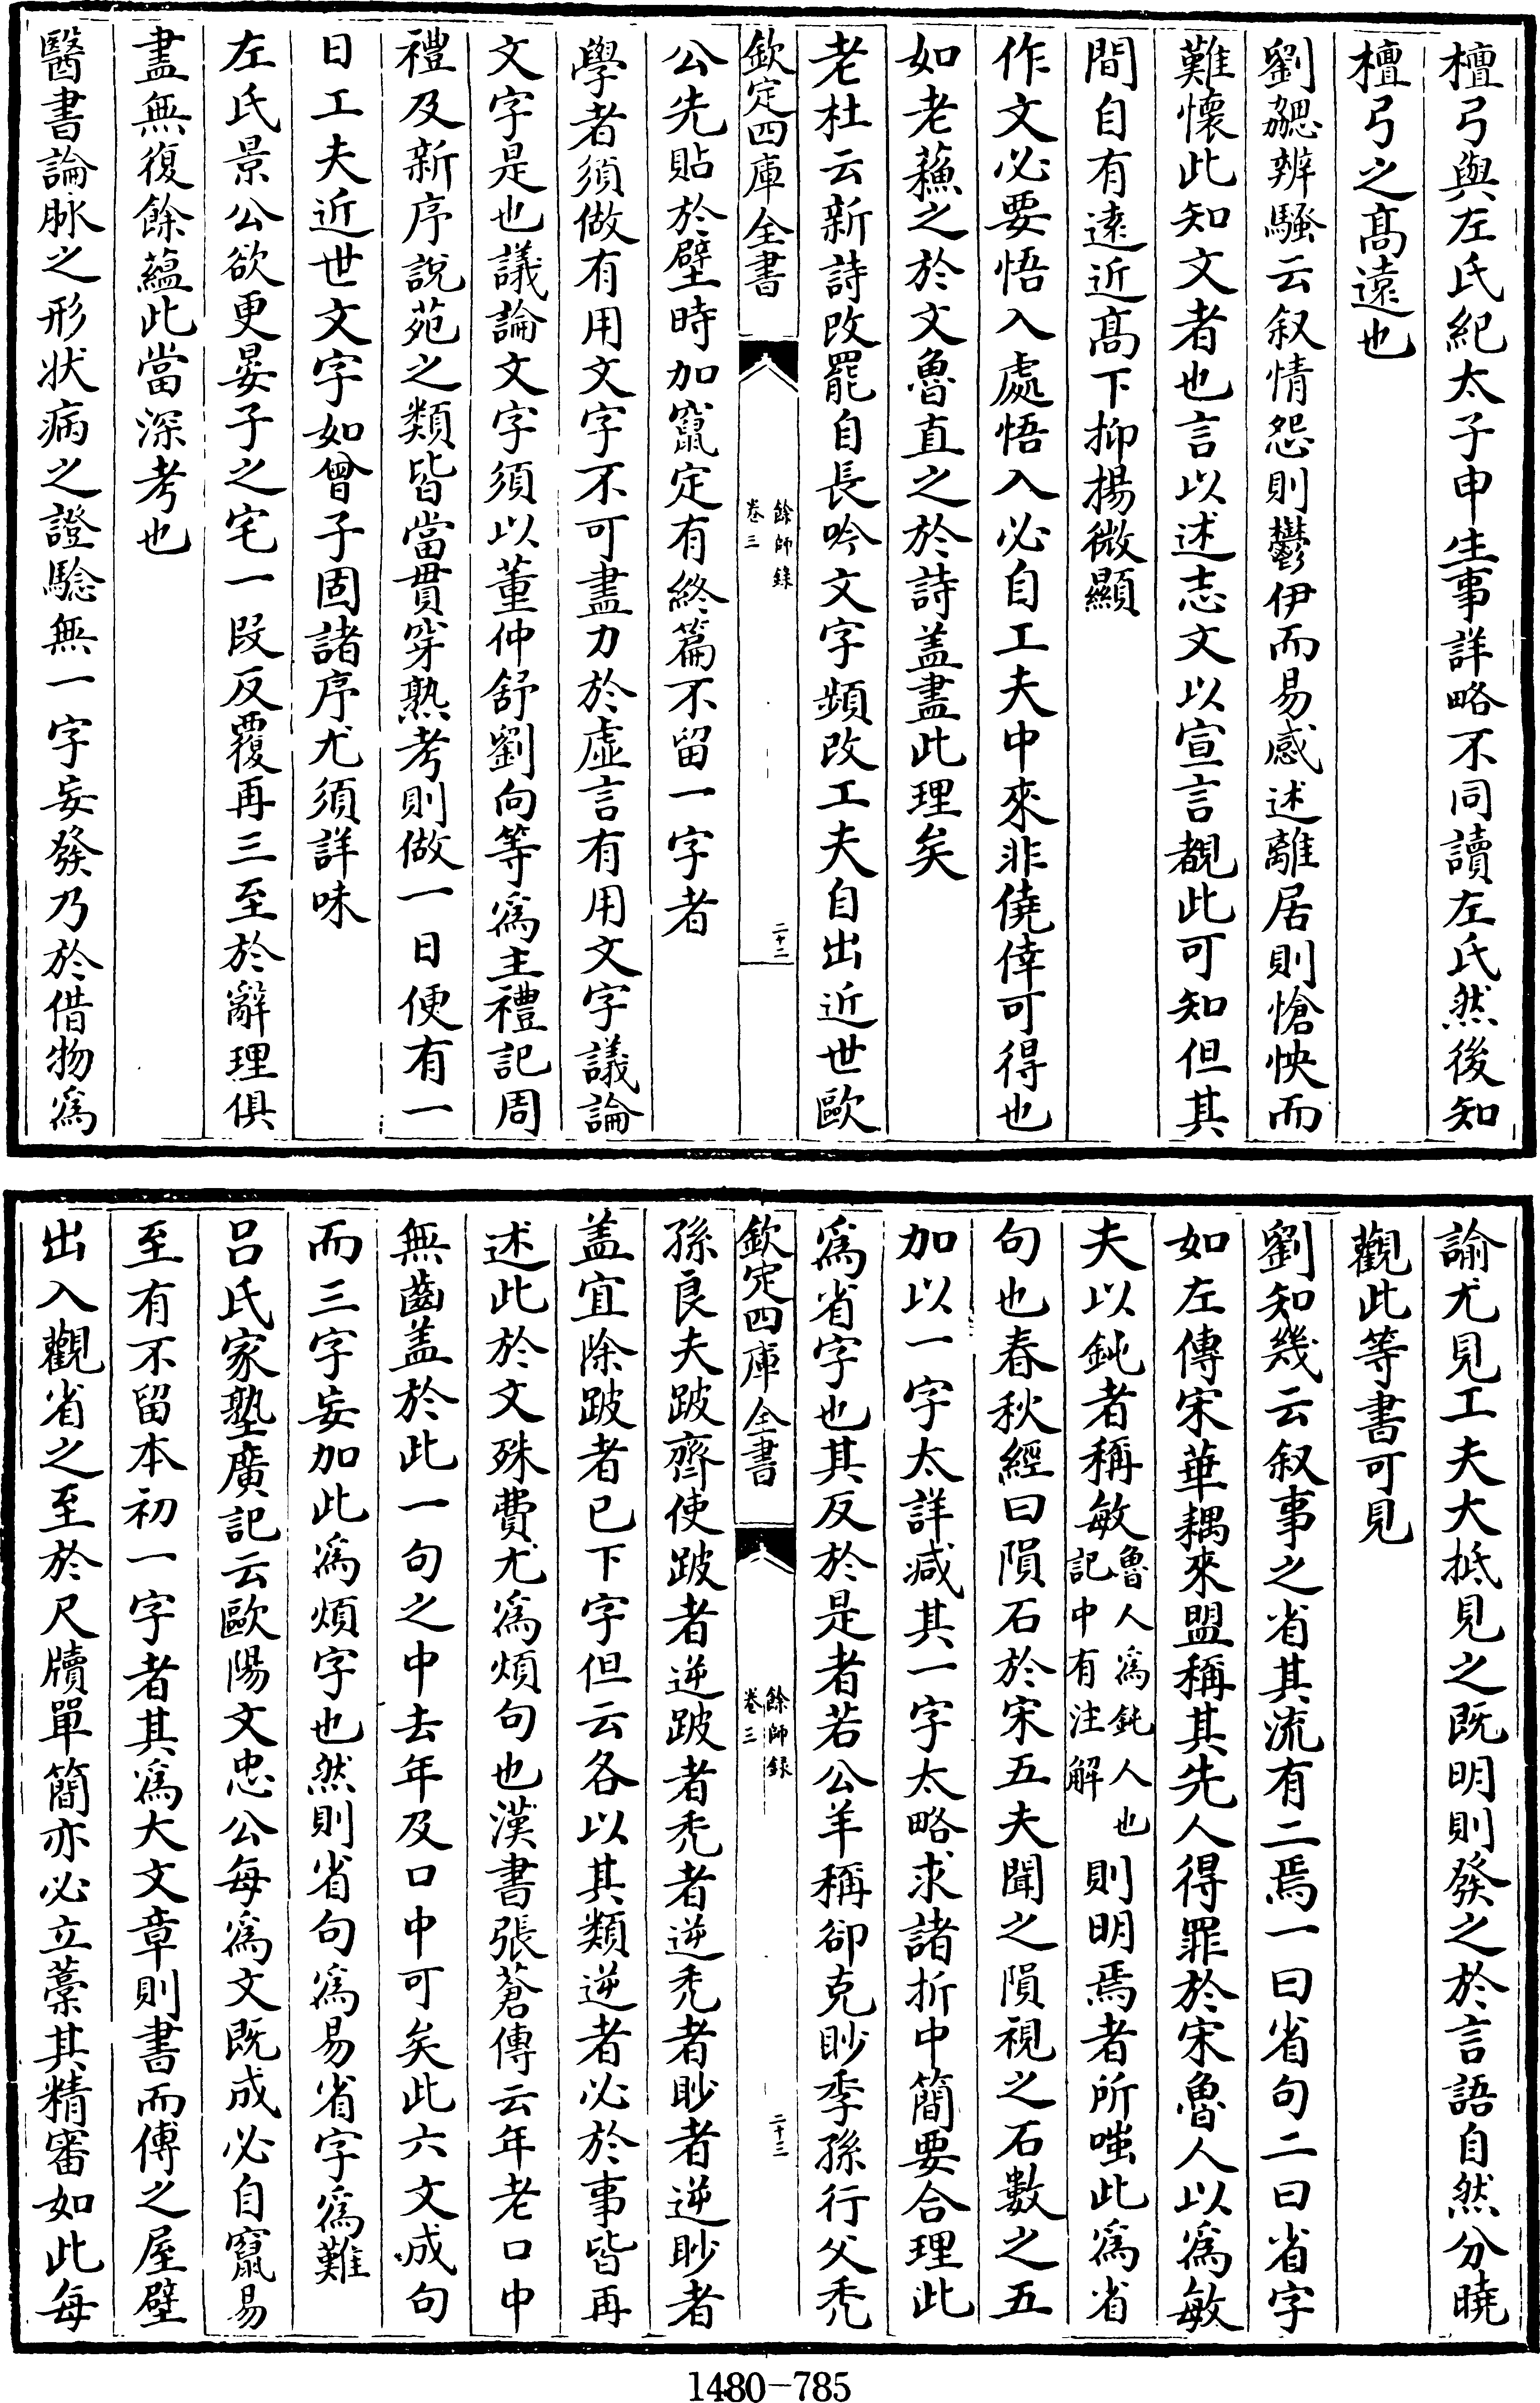 檀弓與左氏紀太子申生事詳略不同讀左氏然後知
檀弓之髙逺也
劉勰辨騷云叙情怨則鬱伊而易感述離居則愴怏而
難懷此知文者也言以述志文以宣言覩此可知但其
間自有逺近髙下抑揚微顯
作文必要悟入處悟入必自工夫中來非僥倖可得也
如老蘓之於文魯直之於詩盖盡此理矣
老杜云新詩改罷自長吟文字頻改工夫自出近世歐
欽定四庫全書
餘師録
卷三
二十二
公先貼於壁時加竄定有終篇不留一字者
學者須做有用文字不可盡力於虚言有用文字議論
文字是也議論文字須以董仲舒劉向等為主禮記周
禮及新序說苑之類皆當貫穿熟考則做一日便有一
日工夫近世文字如曾子固諸序尤須詳味
左氏景公欲更晏子之宅一段反覆再三至於辭理俱
盡無復餘蘊此當深考也
醫書論脉之形状病之證驗無一字妄發乃於借物為
諭尤見工夫大抵見之既明則發之於言語自然分曉
觀此等書可見
劉知幾云叙事之省其流有二焉一曰省句二曰省字
如左傳宋華耦來盟稱其先人得罪於宋魯人以為敏
夫以鈍者稱敏魯人為鈍人也記中有注解則明焉者所嗤此為省
句也春秋經曰隕石於宋五夫聞之隕視之石數之五
加以一字太詳减其一字太略求諸折中簡要合理此
為省字也其反於是者若公羊稱郤克眇季孫行父秃
欽定四庫全書
餘師録
卷三
二十三
孫良夫跛齊使跛者逆跛者秃者逆秃者眇者逆眇者
盖宜除跛者已下字但云各以其類逆者必於事皆再
述此於文殊費尤為煩句也漢書張蒼傳云年老口中
無齒盖於此一句之中去年及口中可矣此六文成句
而三字妄加此為煩字也然則省句為易省字為難
吕氏家塾廣記云歐陽文忠公每為文既成必自竄易
至有不留本初一字者其為大文章則書而傅之屋壁
出入觀省之至於尺牘單簡亦必立藁其精審如此每
1480-785